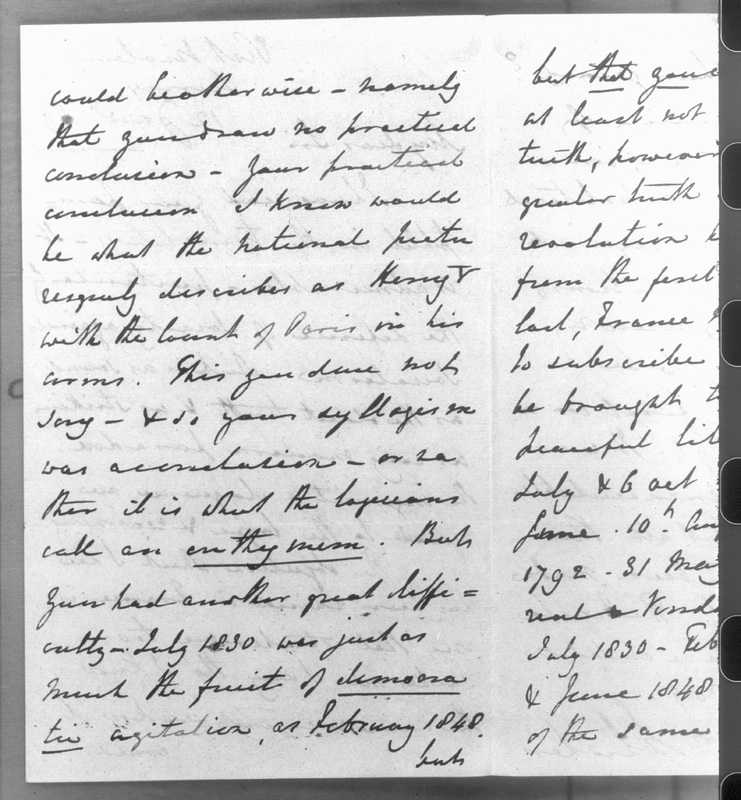 could be otherwise – namely
that you draw no practical
conclusion – Your practical
conclusion I knew would
be what the national
describes as Henry V
with the Count of Paris in his
arms. This you dare not
say – & so your syllogism
was – or ra
ther it is what the logicians
call an enthymem. But
you had another great diffi=
culty – July 1830 was just as
much the fruit of democra
tic agitation, as February 1848.
but
but that you
at least not
truth, however
greater truth
revolution
from the first
last, France
to subscribe
be brought
peaceful
July & 6 Oct
June. 10th Aug
1792 – 31 May
July 1830 – Feb
& June 1848
of the same